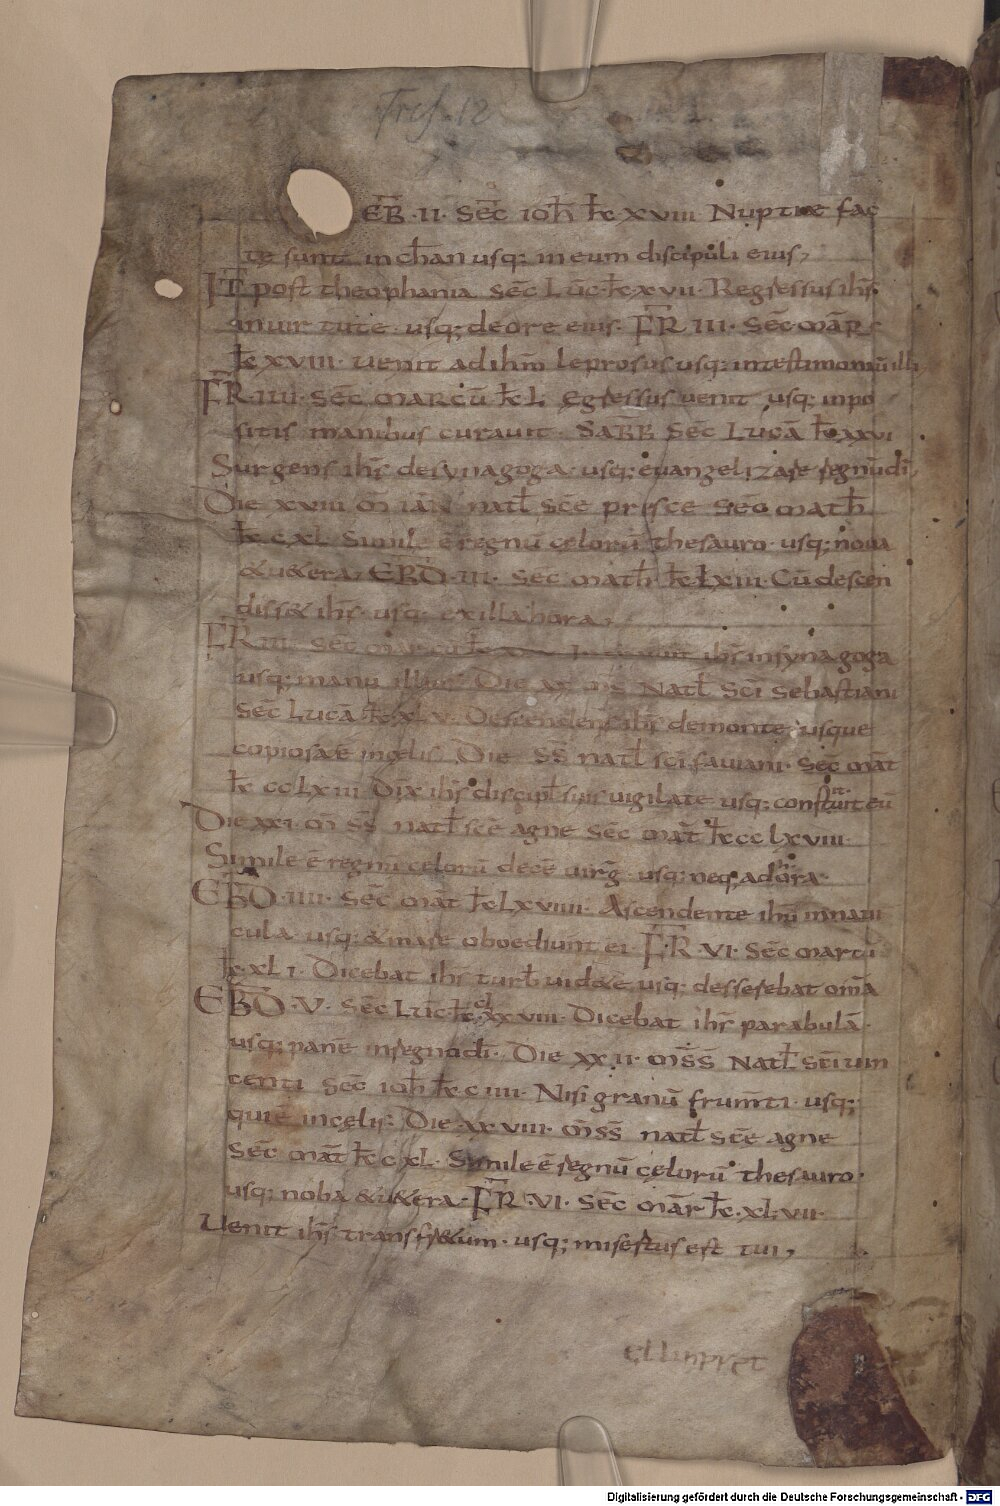 Tref. 12
EB̄ · II · Sēc ioh̄ k̄ xviii Nuptiae fac
te sunt in chan usq: in eum discipuli eius,
IT post theophania sēc Lūc k̄ xvii · Regressus ihs̄
in uir tute · usq; de ore eius · FR̄ III · Sēc mār
k̄ xviii · uenit ad ihm̄ leprosus usq: in testimoniū illi
FR̄ · IIII · Sēc marcū k̄ L egressus uenit usq: inpo
sitis manibus curauit · SABB Sēc Lucā k̄ xxvi
Surgens ihs̄ de synagoga · usq: euangelizare regnū di,
Die xviii m̄ iān natl̄ sc̄e prisce sēc math̄
k̄ c xl Simile ē regnū celorū thesauro · usq: noua
& u&era, EBD · III · Sēc math̄ k̄ Lxiii · Cū descen
diss& ihs̄ · usq: ex illa hora,
FR̄ sēc marcū k̄ ihs̄ in synagoga
usq: manū illius Die xx m̄s̄ Natl̄ Sc̄i Sebastiani
Sēc Lucā k̄ xLv · Descendens ihs̄ de monte, usque
copiosa ē in celis Die s̄s̄ natl̄ sc̄i fauiani · sēc māt
k̄ cc Lxiii Dix̄ ihs̄ discipl̄ suis uigilate usq: constituit eū
Die xxi m̄ s̄s̄ natl̄ sc̄e agne sēc māt k̄ cc Lxviii ·
Simile ē regnū celorū decē uirḡ · usq: neq;
EBD · IIII · Sēc māt k̄ Lxviiii · Ascendente ihū in naui
cula · usq: & mare oboediunt ei · FR̄ · VI · Sēc marcū
k̄ · xL i · Dicebat ihs̄ turb̄ uid&e usq: desserebat om̄a
EBD · V · Sēc Lūc k̄ Dicebat ihs̄ parabulā ·
usq: panē in regno di · Die xx ii · m̄s̄s̄ Natl̄ Sc̄i uin
centi Sēc ioh̄ k̄ c iiii · Nisi granū frum̄ti · usq;
qui ē in celis: Die xx viii · m̄s̄s̄ natl̄ sc̄e agne
sēc māt k̄ c xL · Simile ē regnū celorū thesauro ·
usq: noba & u&era · FR̄ · VI · Sēc mār k̄ · xLvii ·
Uenit ihs̄ trans fr&um · usq; misertus est tui,
Digitalisierung gefördert durch die Deutsche Forschungsgemeinschaft - DFG